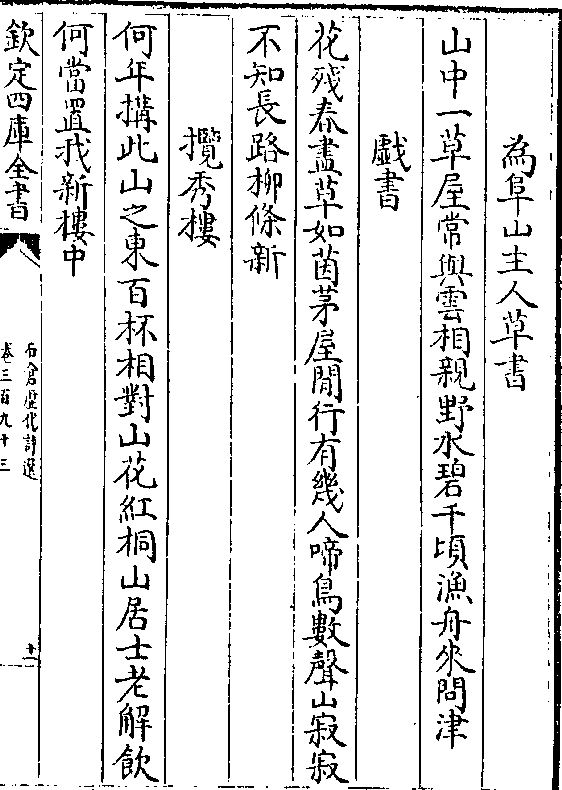 為阜山主人草書
山中一草屋常與雲相親野水碧千頃漁舟來問津
戯書
花殘春盡草如茵茅屋閒行有幾人啼鳥數聲山寂寂
不知長路柳條新
攬秀樓
何年搆此山之東百杯相對山花紅桐山居士老解飲
何當置我新樓中
欽定四庫全書
石倉歴代詩選
卷三百九十三
十一